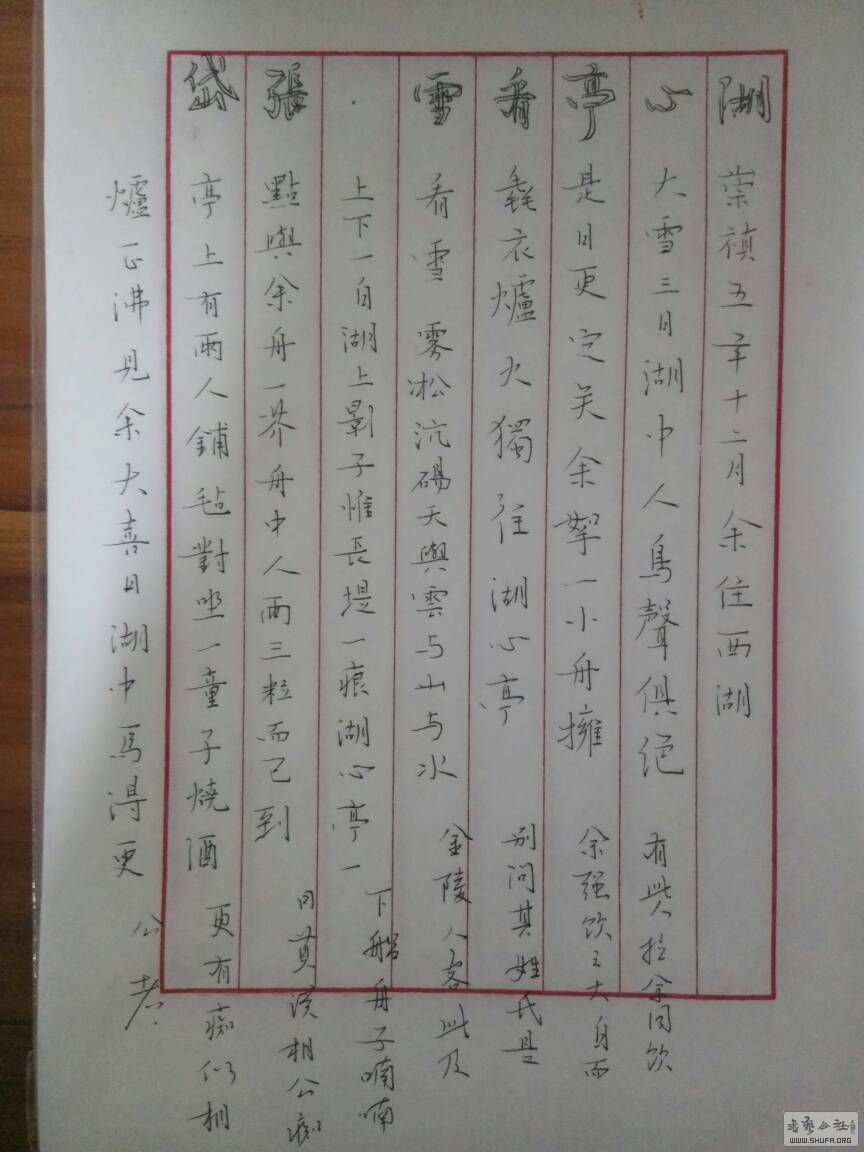 湖心亭看雪·張岱
崇禎五年十二月余住西湖
大雪三日湖中人鳥聲俱絕
是日更定矣余拏一小舟擁
毳衣爐火獨往湖心亭
看雪霧凇沆碭天與雲与山与水
上下一白湖上影子惟長堤一痕湖心亭一
點與余舟一芥舟中人兩三粒而已到
亭上有兩人鋪毡對坐一童子燒酒
爐正沸見余大喜曰湖中焉得更
有此人拉余同饮
余强饮三大白而
别问其姓氏是
金陵人客此及
下船舟子喃喃
曰莫说相公痴
更有痴似相
公者.
书艺公社
WWW.SHUFA.ORG